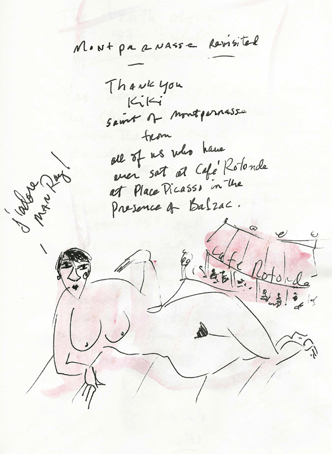 Montparnasse Revisited
Thank you
Kiki
saint of Montparnasse
from
all of us who have
ever sat at Café Rotonde
at Place Picasso in the
Presence of Balzac.
j'adore
Man Ray!
Café Rotonde